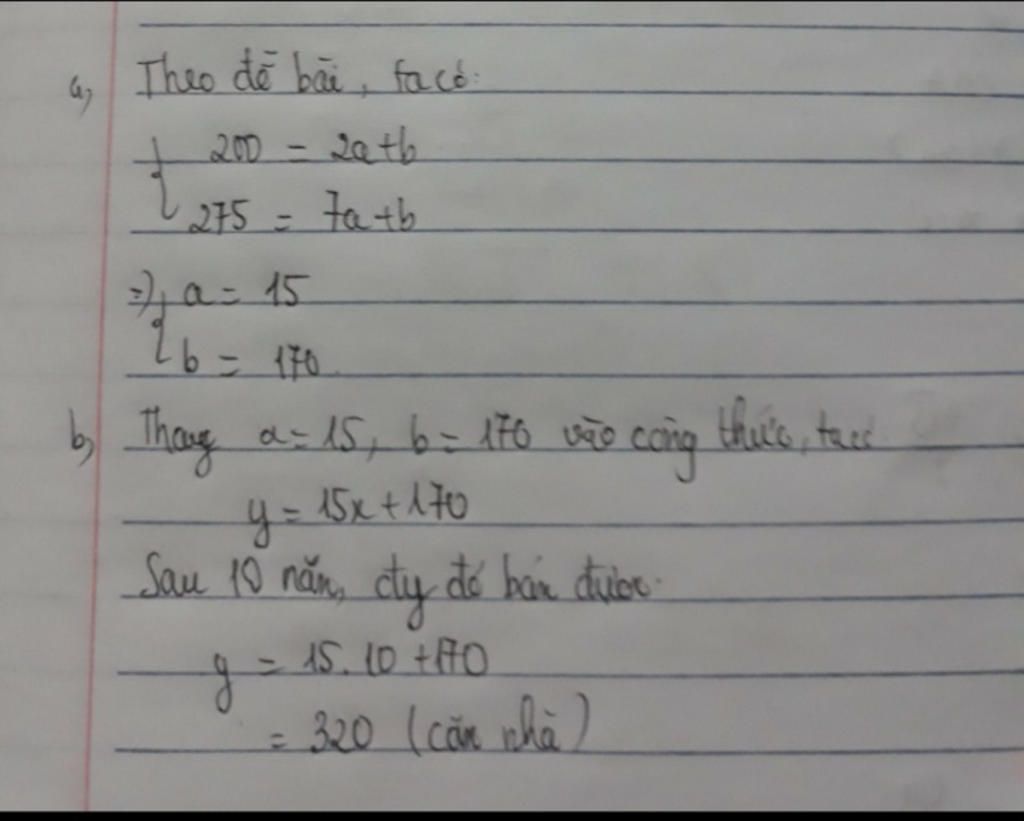 a) Theo đề bài, ta có:
200 = 2a+b
275 = 7a+b
=> a = 15
b = 170
b) Thay a=15, b=170 vào công thức, ta có
y = 15x+170
Sau 10 năm, cty đó bán được:
y = 15.10+170
= 320 (căn nhà)